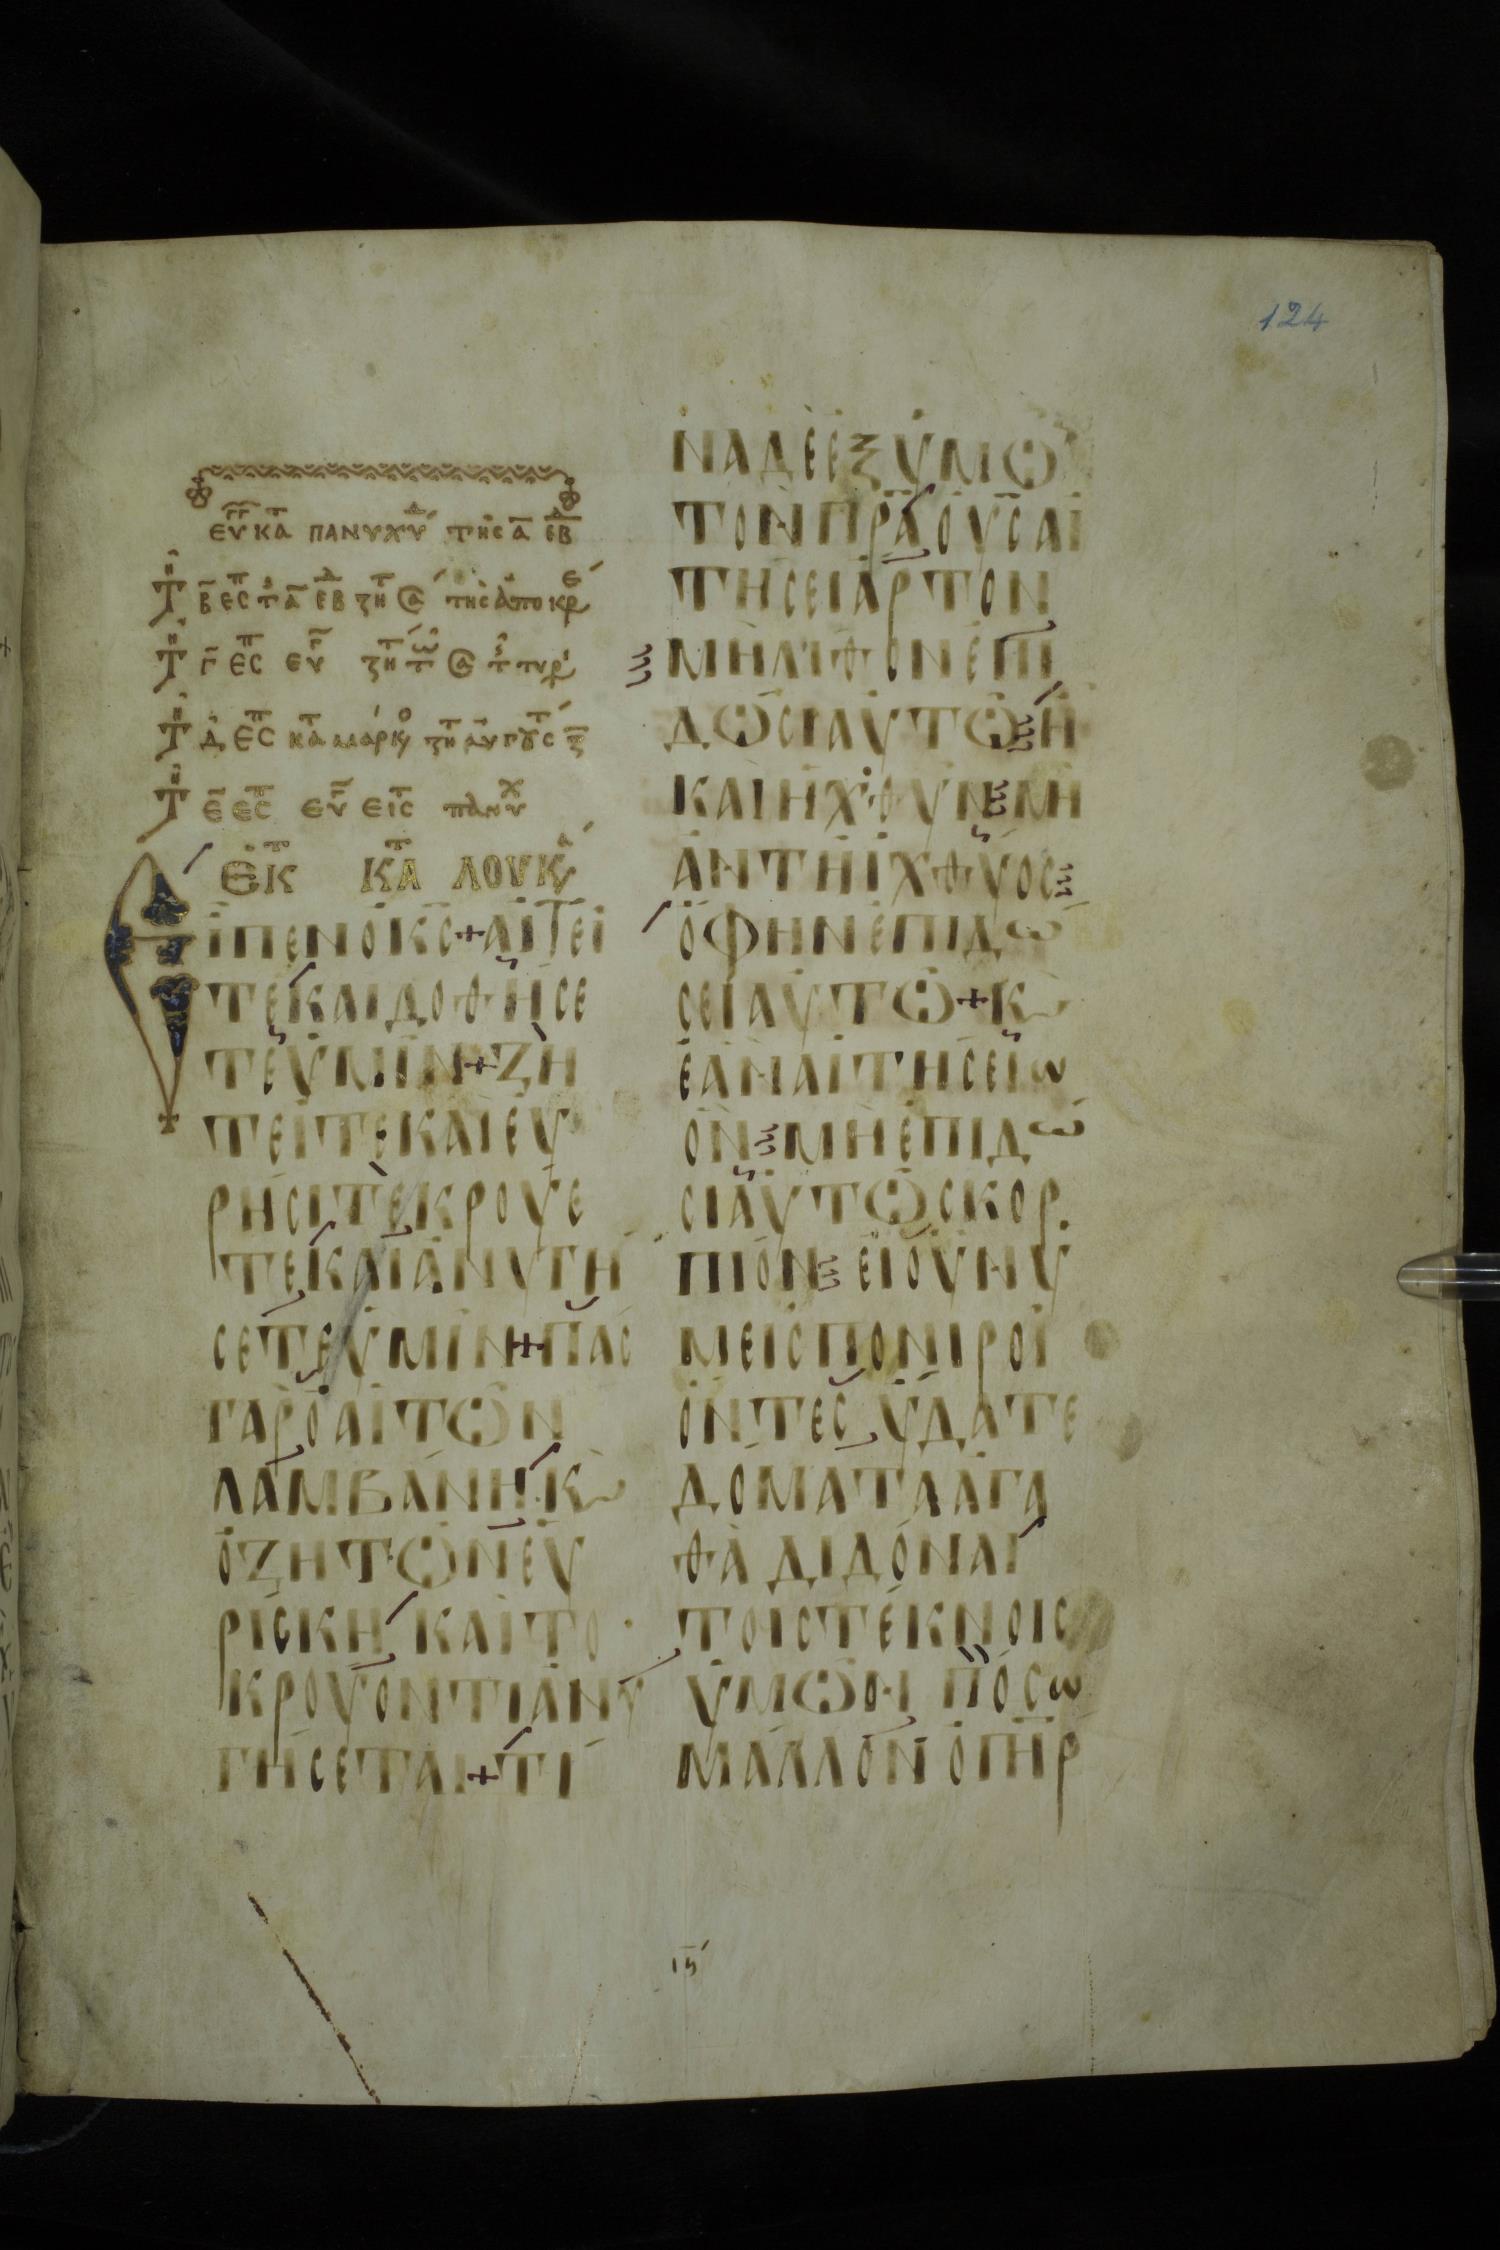 124
ευγγ κατ πανυχυδ της α εβδ
Τη β εσπ τ α εβδ ζητ @ της αποκρε
Τη γ εσπ ευγ ζητ τω @ τ τυρ
Τη δ εσπ κατ μαρκο ζητ αυγουστ ϛ
Τη ε εσπ ευγ εις τ πανυχ
ΕΚ Τ ΚΑΤ ΛΟΥΚΑ
Ε
ΙΠΕΝΟΚΣ+ΑΙΤΕΙ
ΤΕΚΑΙΔΟΘΗΣΕ
ΤΕΥΜΙΝ+ΖΗ
ΤΕΙΤΕΚΑΙΕΥ
ΡΗΣΙΤΕΚΡΟΥΕ
ΤΕΚΑΙΑΝΥΓΗ
ΣΕΤΕΥΜΙΝ+ΠΑΣ
ΓΑΡΟΑΙΤΩΝ
ΛΑΜΒΑΝΗ Κ
ΟΖΗΤΩΝΕΥ
ΡΙΣΚΗ ΚΑΙΤΟ
ΚΡΟΥΟΝΤΙΑΝΥ
ΓΗΣΕΤΑΙ+ΤΙ
ΝΑΔΕΕΞΥΜΩ
ΤΟΝΠΡΑΟΥΣΑΙ
ΤΗΣΕΙΑΡΤΟΝ
ΜΗΛΙΘΟΝΕΠΙ
ΔΩΣΙΑΥΤΩ Η
ΚΑΙΗΧΘΥΝ ΜΗ
ΑΝΤΗΙΧΘΥΟΣ
ΟΦΗΝΕΠΙΔΩ
ΣΕΙΑΥΤΩ+Κ
ΕΑΝΑΙΤΗΣΕΙΩ
ΟΝ ΜΗΕΠΙΔΩ
ΣΙΑΥΤΩΣΚΟΡ
ΠΙΟΝ ΕΙΟΥΝΥ
ΜΕΙΣΠΟΝΙΡΟΙ
ΟΝΤΕΣ ΥΔΑΤΕ
ΔΟΜΑΤΑΑΓΑ
ΘΑ ΔΙΔΟΝΑΙ
ΤΟΙΣΤΕΚΝΟΙΣ
ΥΜΩΝ ΠΟΣΩ
ΜΑΛΛΟΝ ΟΠΗΡ
ιϛ